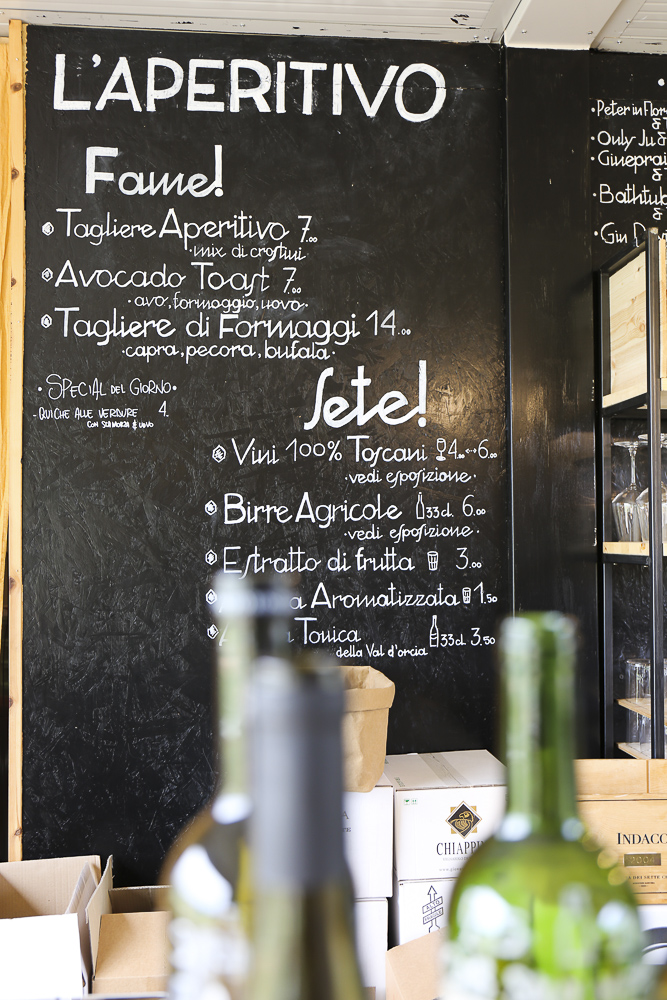 L'APERITIVO
Fame!
Tagliere Aperitivo 7.00
·mix di crostini
Avocado Toast 7.00
·avo, formaggio, uovo·
Tagliere di Formaggi 14.00
·capra, pecora, bufala·
·SPECIAL DEL GIORNO·
-QUICHE ALLE VERDURE 4.
CON SCAMORZA & UOVO
Sete!
Vini 100% Toscani 4.00↔6.00
·vedi esposizione·
Birre Agricole 33cl. 6.00
·vedi esposizione·
Estratto di frutta 3.00
Aromatizzata 1.50
Tonica 33cl. 3,50
della Val d'orcia
·Peter in Flor
&
·Only Ju &
·Gineprai
&
·Bathtub
&
·Gin
CHIAPPIN
INDACO
2004
ALTO